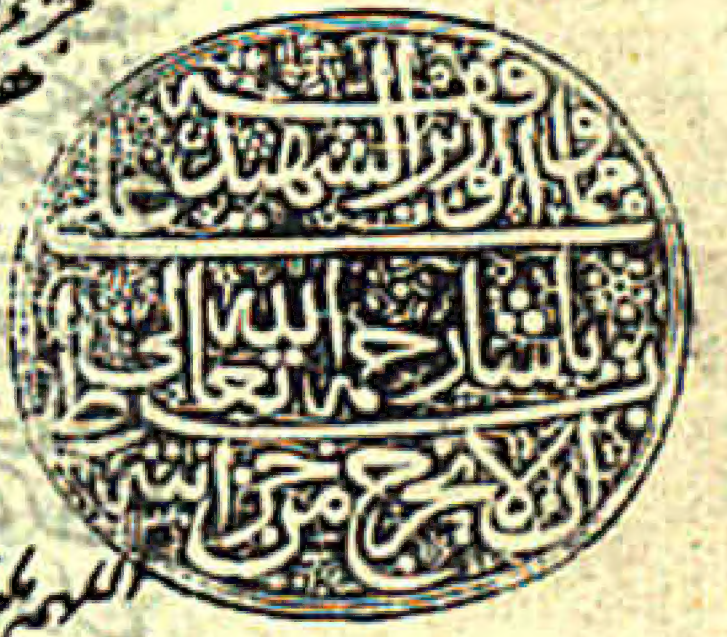 مما وقفه الوزير الشهيد علي
باشا رحمه الله تعالى بشرط
ان لا يخرج من خزانته